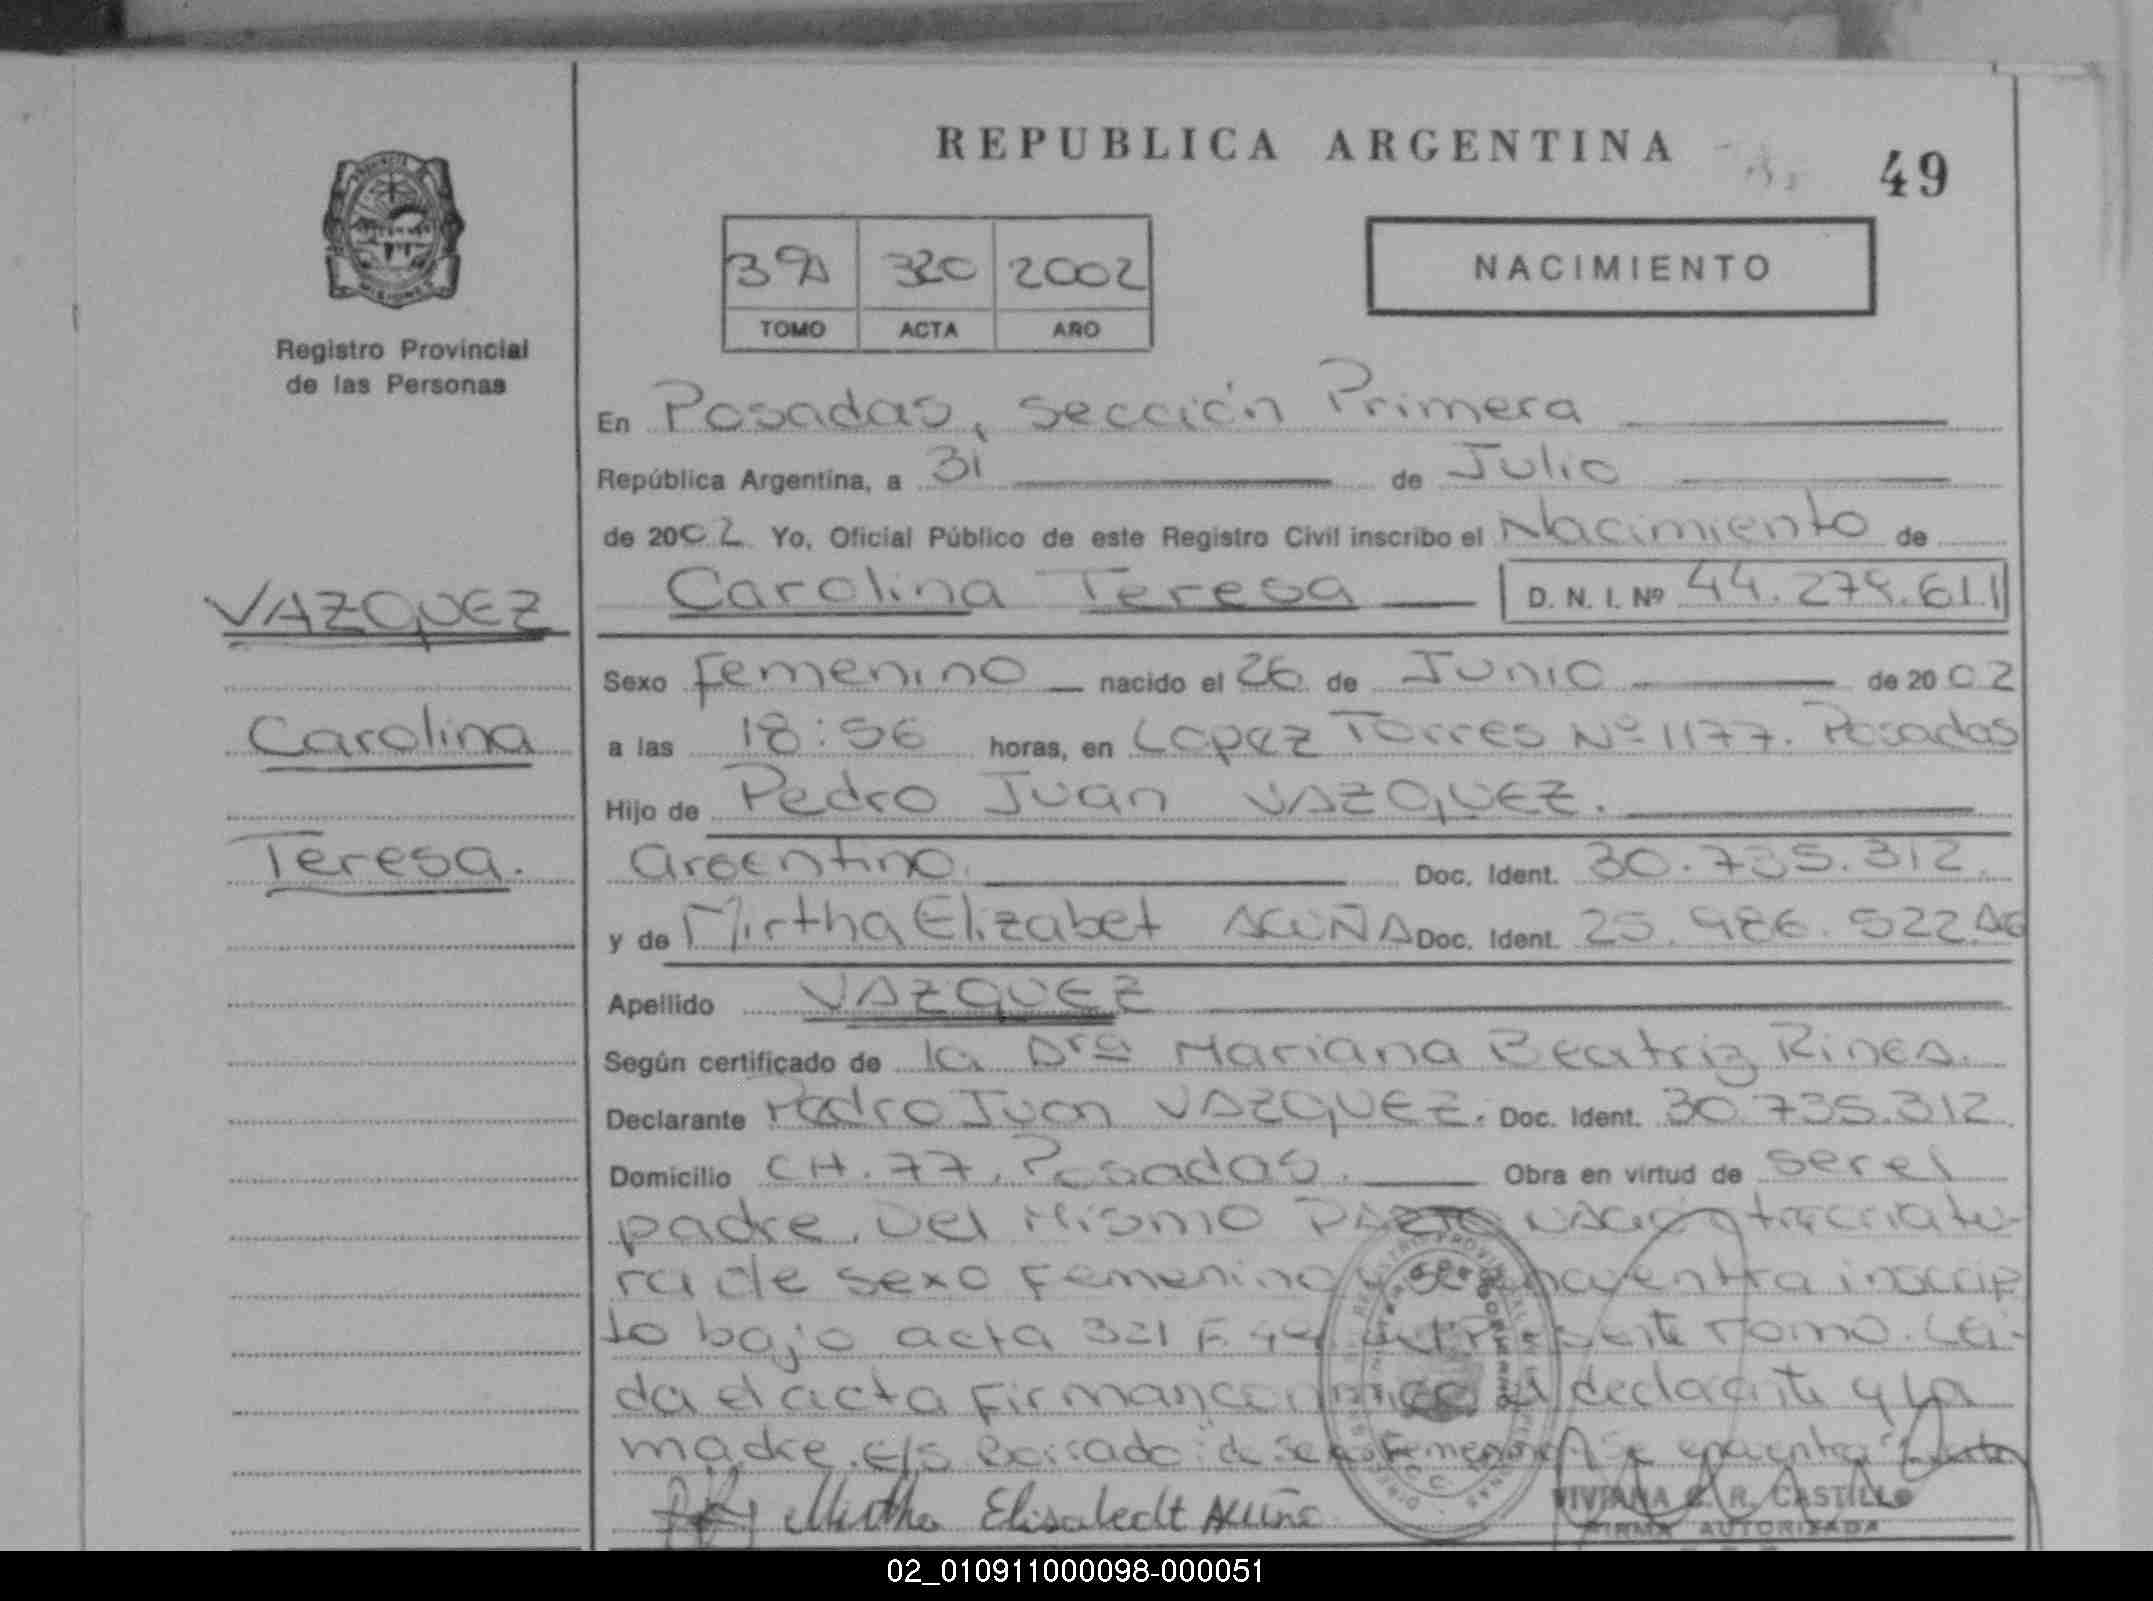 REPUBLICA ARGENTINA
49
PROVINCIA
MISIONES
Registro Provincial
de las Personas
320 2002
TOMO ACTA AÑO
NACIMIENTO
En Posadas, sección Primera
República Argentina, a 31 de Julio
de 2002 Yo, Oficial Público de este Registro Civil inscribo el Nacimiento de
Carolina Teresa D. N. I. Nº
VAZQUEZ
Carolina
Teresa.
Sexo femenino nacido el 26 de Junio de 2002
a las 18:56 horas, en Lopez Torres Nº 1177. Posadas
Hijo de Pedro Juan VAZQUEZ.
argentino. Doc. Ident. 30.735.312.
y de Mirtha Elizabet ACUÑA Doc. Ident.
Apellido VAZQUEZ
Según certificado de la Dra Mariana Beatriz
Declarante Pedro Juan VAZQUEZ. Doc. Ident. 30.735.312.
Domicilio CH. 77. Posadas. Obra en virtud de ser el
padre. Del Mismo
ra de sexo femenino y se encuentra inscrip
to bajo acta 321 F. Tomo. Lei-
da el acta firman conmigo el declarante y la
madre. e/s
Mirtha Elisabedt Acuña
VIVIANA R. CASTILLO
FIRMA AUTORIZADA
02_010911000098-000051